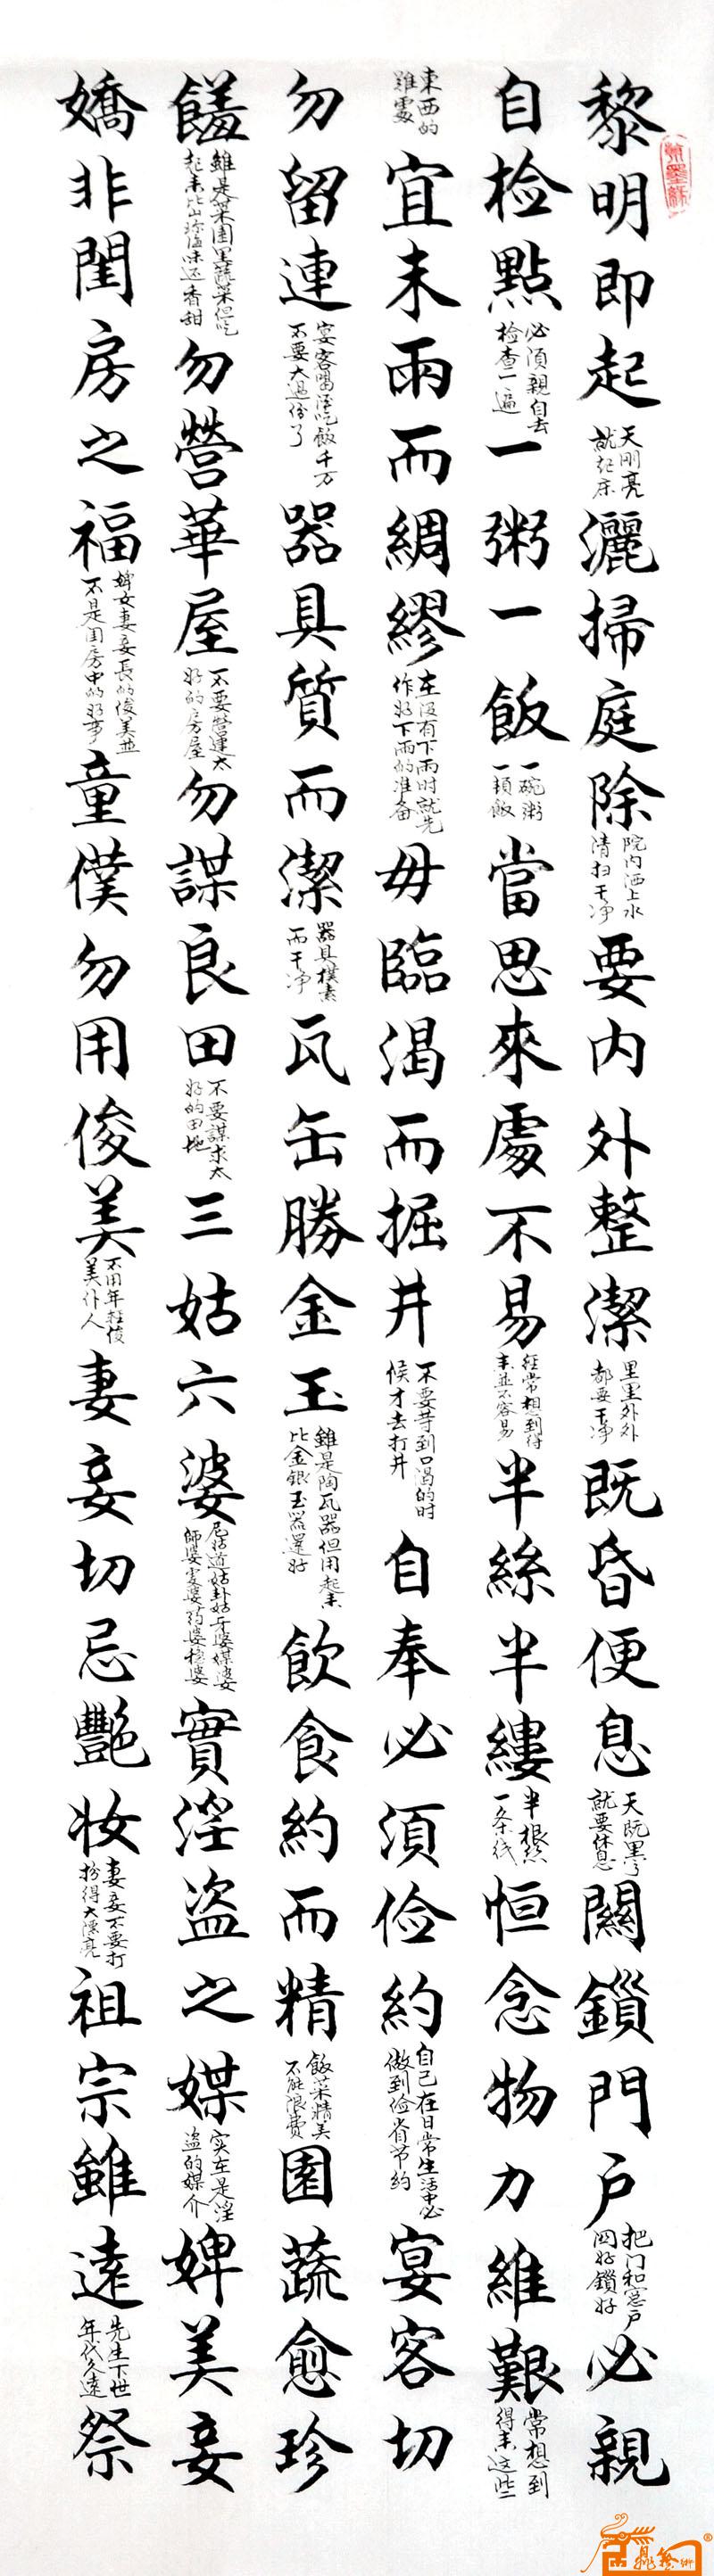 黎明即起天刚亮就起床灑掃庭除院内洒上水清扫干净要内外整潔里里外外都要干净既昏便息天既黑了就要休息關鎖門户把门和窗户関好鎖好必親
自检點必須親自去检查一遍一粥一飯一碗粥一頓飯當思來處不易经常想到得来並不容易半絲半縷半根丝一条线恒念物力維艱常想到得来这些
東西的難處宜未雨而綢繆在没有下雨时就先作好下雨的准备毋臨渴而掘井不要等到口渴的时候才去打井自奉必須俭約自己在日常生活中必做到俭省节约宴客切
勿留連宴客留宿吃飯千万不要太過份了器具質而潔器具樸素而干净瓦缶勝金玉雖是陶瓦器但用起来比金銀玉器還好飲食約而精飯菜精美不能浪費園蔬愈珍
饈雖是菜園里蔬菜但吃起来比山珍海味还香甜勿營華屋不要营建太好的房屋勿謀良田不要謀求太好的田地三姑六婆尼姑道姑卦姑牙婆媒婆師婆虔婆药婆稳婆實淫盗之媒实在是淫盗的媒介婢美妾
嬌非閨房之福婢女妻妾長的俊美並不是闺房中的好事童僕勿用俊美不用年轻俊美仆人妻妾切忌艷妝妻妾不要打扮得太漂亮祖宗雖遠先生下世年代久遠祭